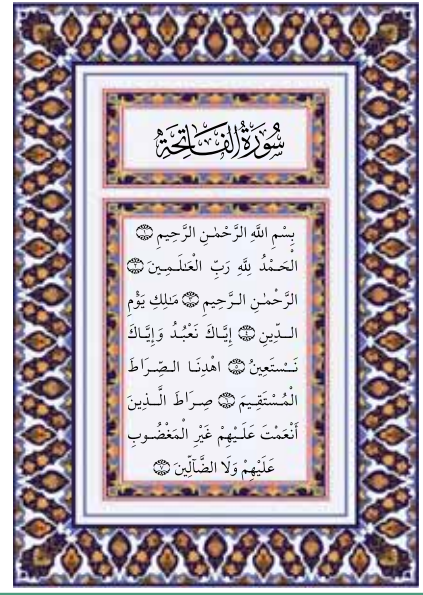 سُورَةُ الفَاتِحَةِ
بِسْمِ اللَّهِ الرَّحْمَٰنِ الرَّحِيمِ ۝١
الحَمْدُ لِلَّهِ رَبِّ الْعَالَمِينَ ۝٢
الرَّحْمَٰنِ الرَّحِيمِ ۝٣ مَالِكِ يَوْمِ
الدِّينِ ۝٤ إِيَّاكَ نَعْبُدُ وَإِيَّاكَ
نَسْتَعِينُ ۝٥ اهْدِنَا الصِّرَاطَ
الْمُسْتَقِيمَ ۝٦ صِرَاطَ الَّذِينَ
أَنْعَمْتَ عَلَيْهِمْ غَيْرِ الْمَغْضُوبِ
عَلَيْهِمْ وَلَا الضَّالِّينَ ۝٧